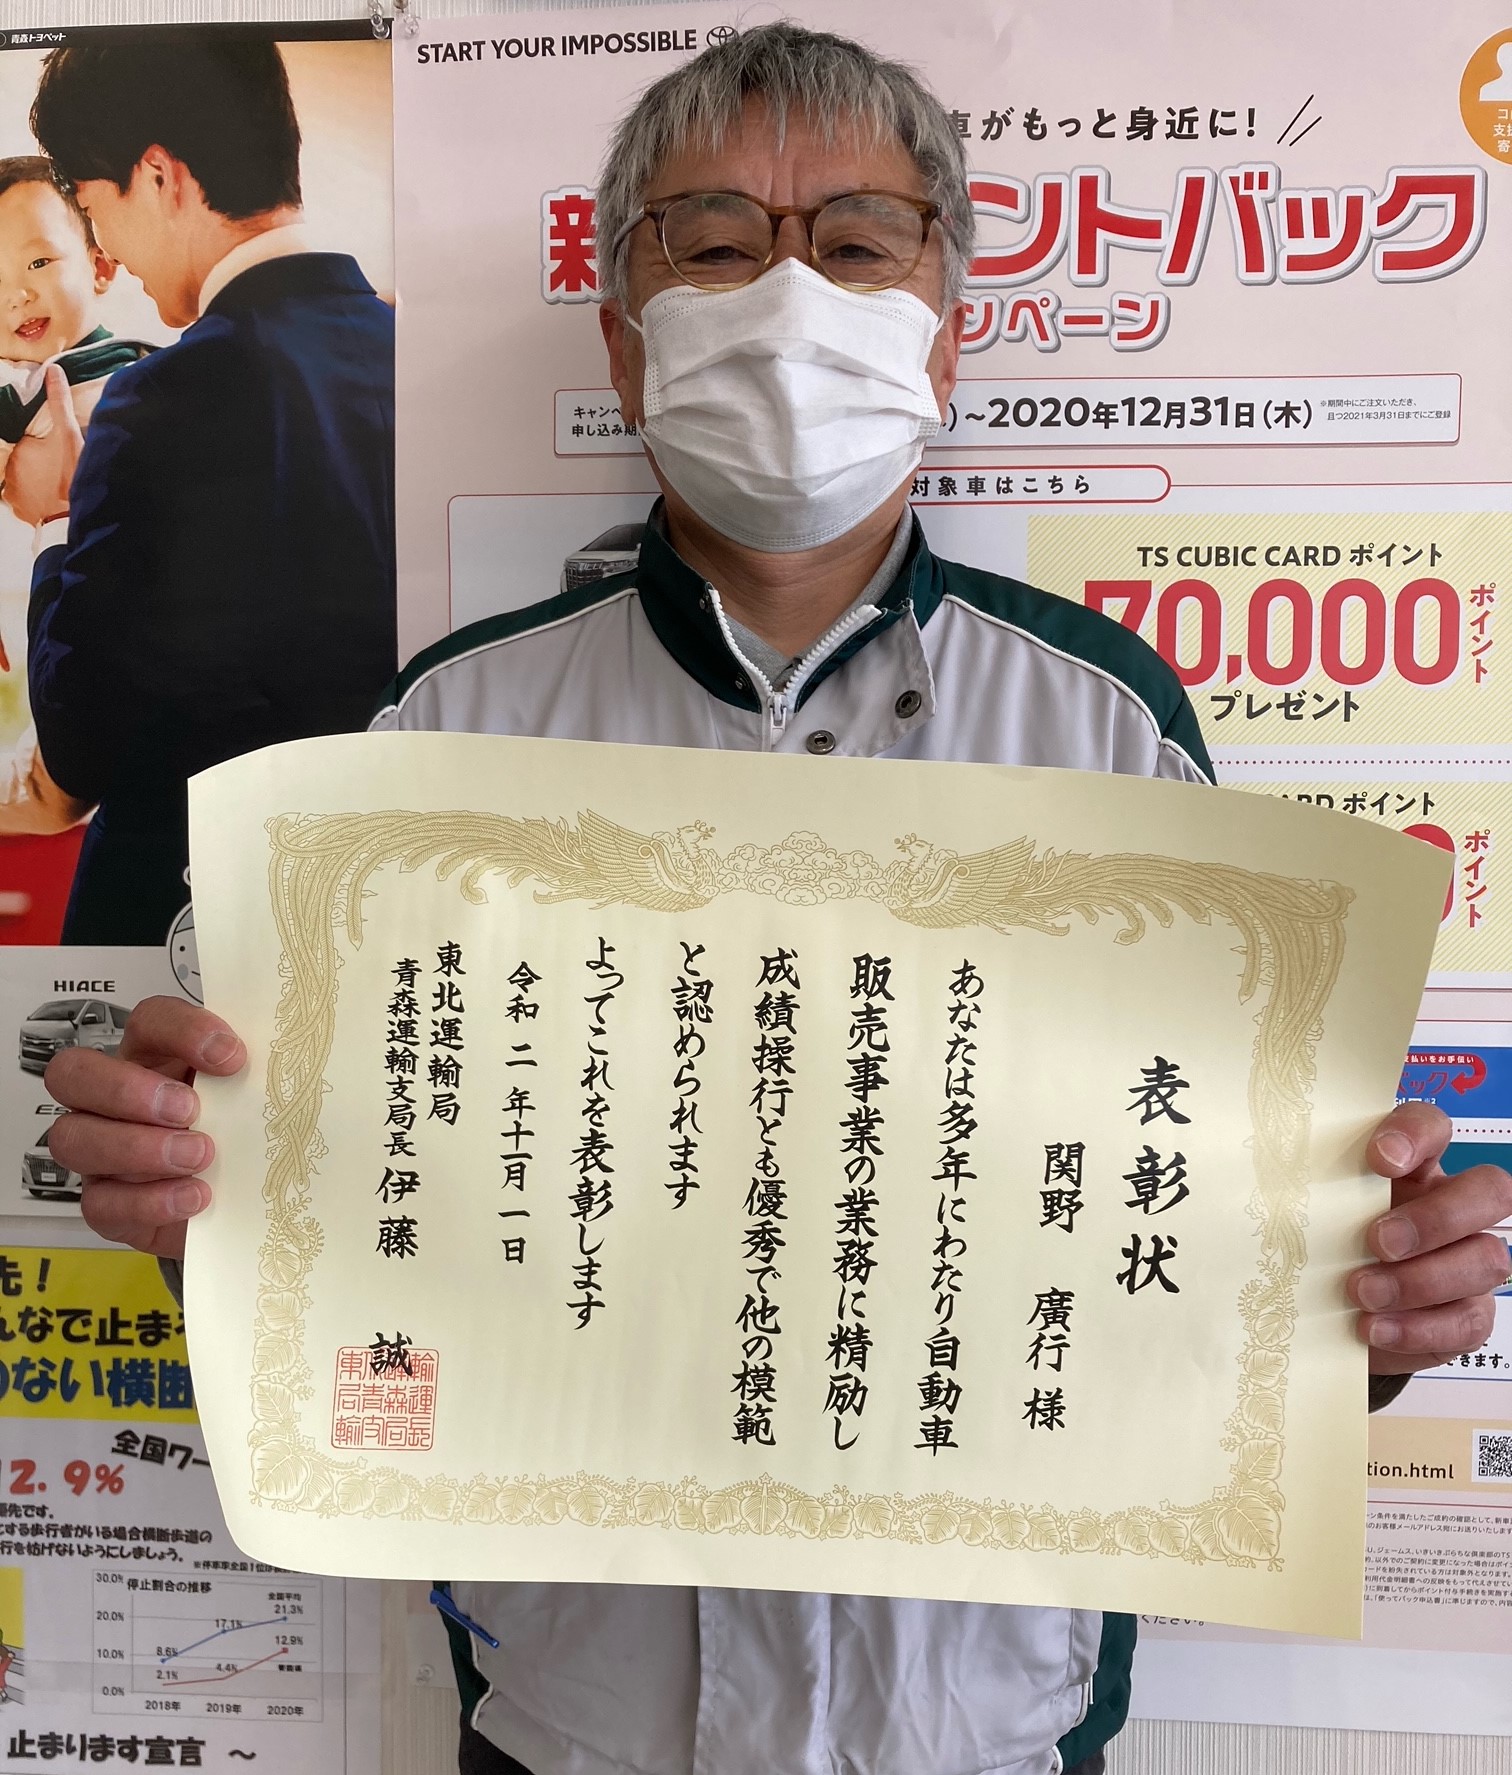 青森トヨペット
START YOUR IMPOSSIBLE
車がもっと身近に!
新
ントバック
ンペーン
キャンペ
申し込み期
〜2020年12月31日(木)
※期間中にご注文いただき、
且つ2021年3月31日までにご登録
対象車はこちら
TS CUBIC CARD ポイント
70,000
ポイント
プレゼント
ARD ポイント
ポイント
表彰状
関野 廣行 様
あなたは多年にわたり自動車
販売事業の業務に精励し
成績操行とも優秀で他の模範
と認められます
よってこれを表彰します
令和二年十一月一日
東北運輸局
青森運輸支局長 伊藤 誠
HIACE
先!
んなで止まる
のない横断
全国ワー
12.9%
優先です。
にする歩行者がいる場合横断歩道の
行を妨げないようにしましょう。
停止割合の推移
30.0%
20.0%
10.0%
0.0%
全国平均
21.3%
17.1%
8.6%
12.9%
4.4%
2.1%
2018年 2019年 2020年
止まります宣言 〜
支払いをお手伝い
バック
できます。
tion.html
ください。